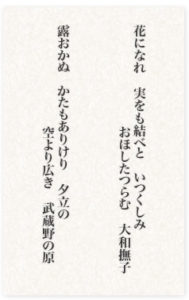 花になれ　実をも結べと　いつくしみ
おほしたつらむ　大和撫子
露おかぬ　かたもありけり　夕立の
空より広き　武蔵野の原